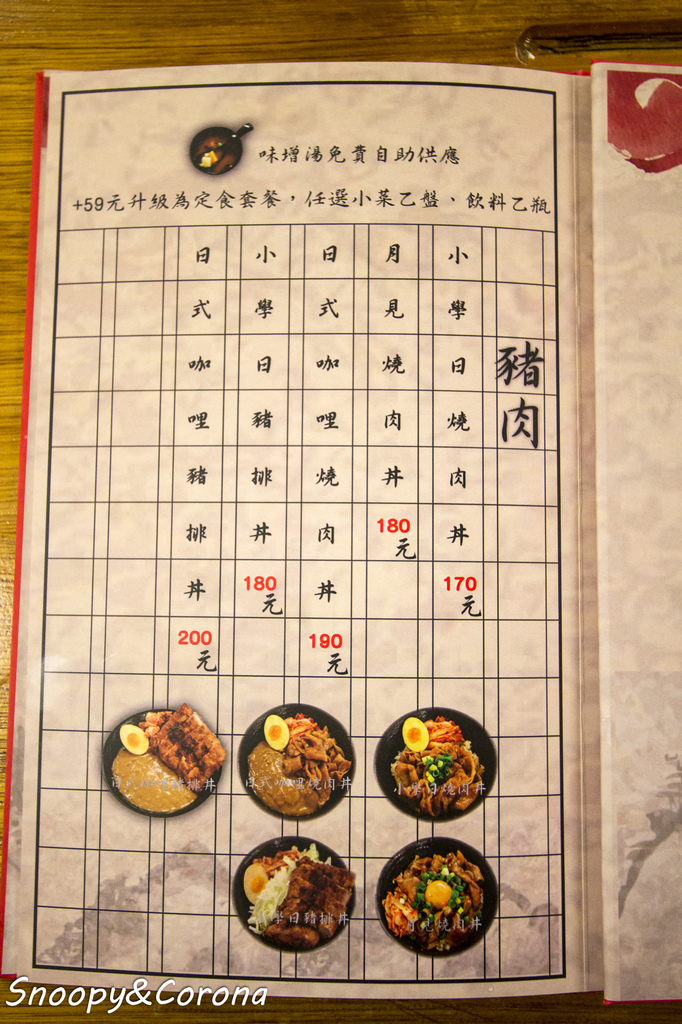 味增湯免費自助供應
+59元升級為定食套餐,任選小菜乙盤、飲料乙瓶
豬肉
小學日燒肉丼 170元
月見燒肉丼 180元
日式咖哩燒肉丼 190元
小學日豬排丼 180元
日式咖哩豬排丼 200元
日式咖哩豬排丼
日式咖哩燒肉丼
小學日燒肉丼
小學日豬排丼
月見燒肉丼
Snoopy&Corona